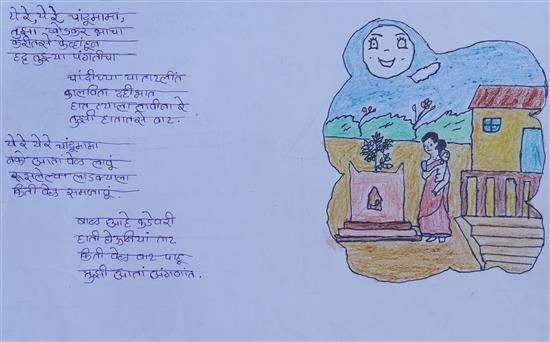 ये रे, ये रे चांदूमामां,
तुझा खोडकर भाचा
करीतसे केव्हांहून
हट्ट तुझ्या पंगतीचा
चांदीच्या या ताटलींत
कालविता दहीभात
हात त्याला लावीना रे
तुझी हातातसे वाट.
ये रे ये रे चांदूमामा
नको आता वेळ लावूं
रूसलेल्या लाडक्याला
किती वेळ समजावूं.
बाळ आहे कडेवरी
हाती घेऊनीयां ताट
किती वेळ वाट पाहू
तुझी आतां अंगणांत.